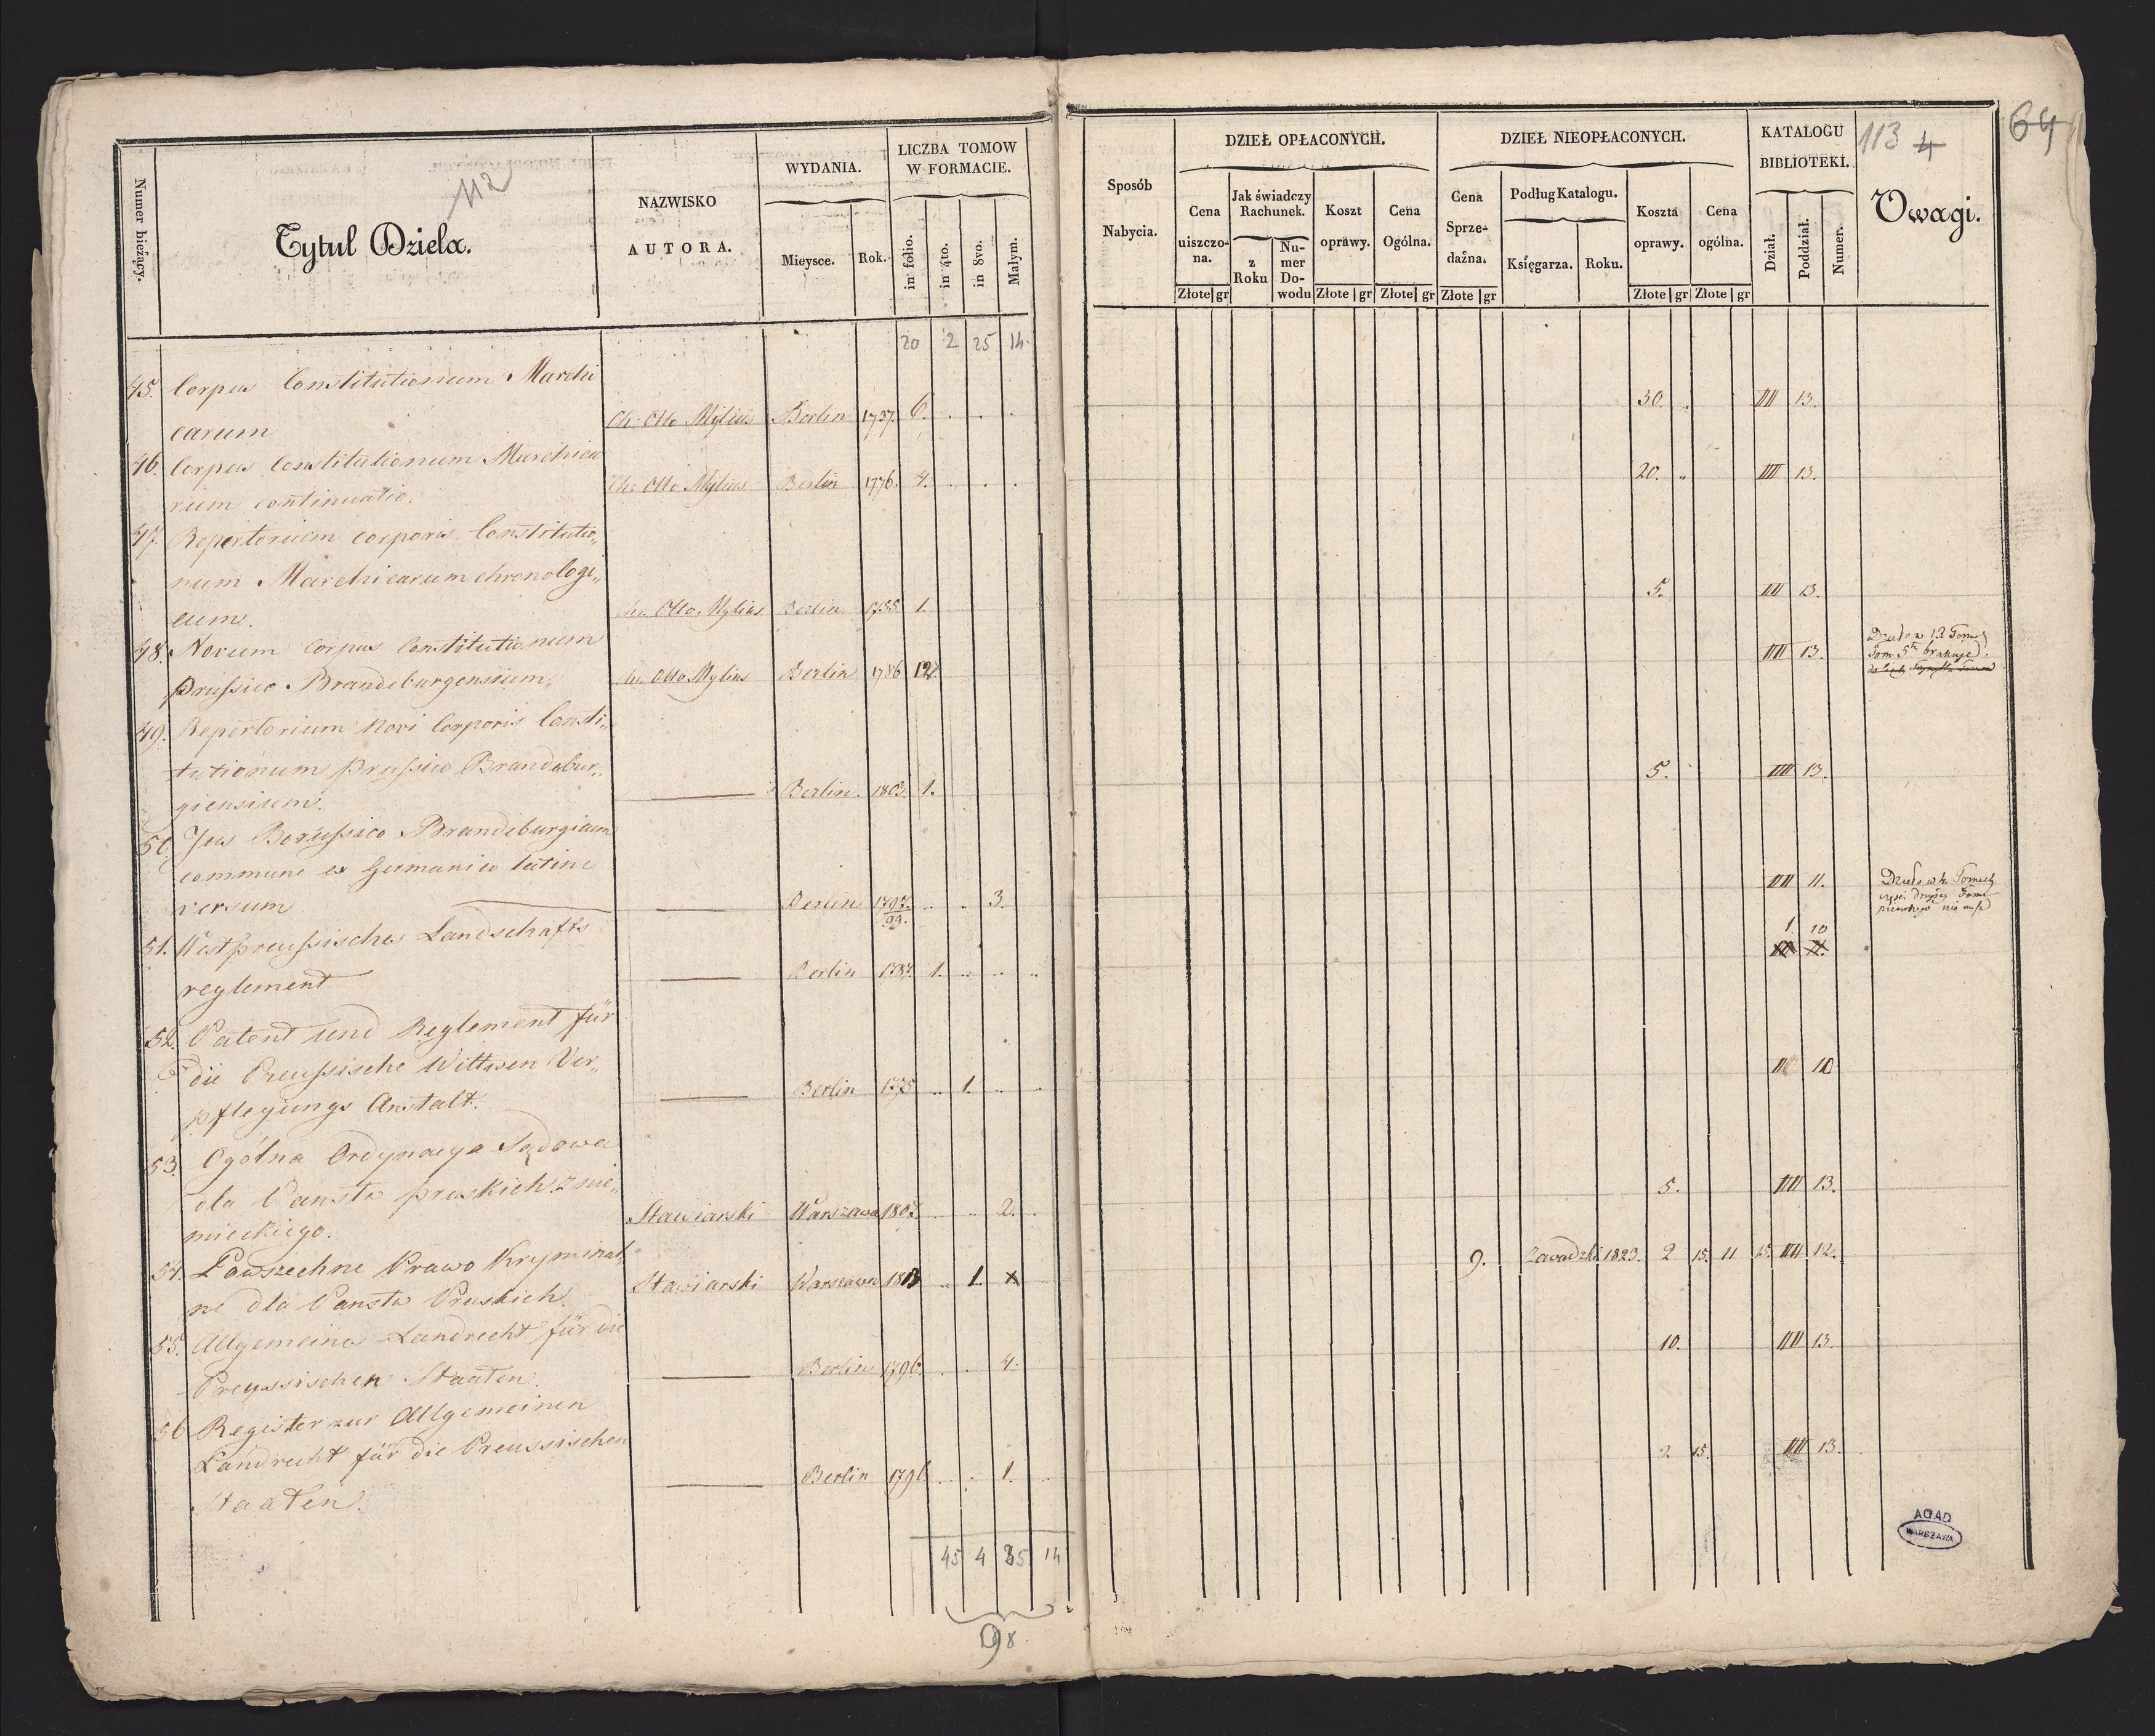 112
113 4
64
Numer bieżący.
Tytuł Dzieła.
NAZWISKO
AUTORA.
WYDANIA.
Mieysce. Rok.
LICZBA TOMOW
W FORMACIE.
in folio. in 4to. in 8vo. Małym.
Sposób
Nabycia.
DZIEŁ OPŁACONYCH.
Cena
uiszczo-
na.
Złote gr
Jak świadczy
Rachunek.
z
Roku
Nu-
mer
Do-
wodu
Koszt
oprawy.
Złote gr
Cena
Ogólna.
Złote gr
DZIEŁ NIEOPŁACONYCH.
Cena
Sprze-
daźna.
Złote gr
Podług Katalogu.
Księgarza. Roku.
Koszta
oprawy.
Złote gr
Cena
ogólna.
Złote gr
KATALOGU
BIBLIOTEKI.
Dział. Poddział. Numer.
Uwagi.
20 2 25 14
45. Corpus Constitutionum Marchi
carum Ch: Otto Mylius Berlin 1737. 6. 30. IIII 13.
46. Corpus Constitutionum Marchica
rum continuatio. Ch: Otto Mylius Berlin 1776. 4. 20. IIII 13.
47. Repertorium corporis Constitutio„
num Marchicarum chronologi„
cum. Ch: Otto Mylius Berlin 1755 1. 5. IIII 13.
48. Novum Corpus Constitutionum
prussico Brandeburgensium. Ch: Otto Mylius Berlin 1786 12. IIII 13.
Dzieło w 13 Tomach
Tom 5ty brakuje.
49. Repertorium Novi Corporis Consti„
tutionum prussico Brandebur„
giensium. Berlin. 1803. 1. 5. IIII 13.
50. Jus Borussico Brandeburgicum
commune ex Germanico latine
versum Berlin 1797./99. 3. IIII 11.
Dzieło w 4 Tomach
części drugiej Tomu
pierwszego nie masz
51. Westpreussisches Landschafts
reglement Berlin 1787. 1. 1. 10
52. Patent und Reglement für
die Preussische Wittwen Ver„
pflegungs Anstalt. Berlin 1775 1. 10
53. Ogólna Ordynacya Sądowa
dla Państw pruskich z nie„
mieckiego. Stawiarski Warszawa 1807. 2. 5. IIII 13.
54. Powszechne Prawo Kryminal„
ne dla Państw Pruskich. Stawiarski Warszawa 1813 1. 9. Zawadzki 1823. 2 15. 11 15. IIII 12.
55. Allgemeine Landrecht für die
Preussischen Staaten. Berlin 1796. 4. 10. IIII 13.
56 Register zur Allgemeinen
Landrecht für die Preussischen
Staaten. Berlin 1796 1. 2 15. IIII 13.
45 4 35 14
98
AGAD
WARSZAWA